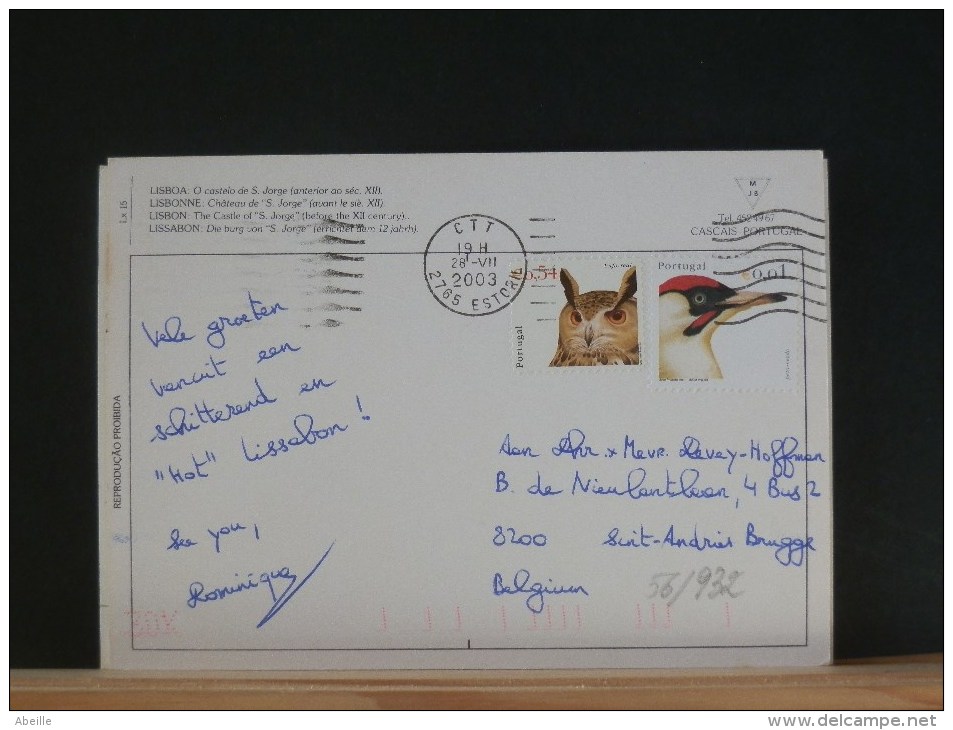 LISBOA: O castelo de S. Jorge (anterior ao séc. XII).
LISBONNE: Château de "S. Jorge" (avant le siè. XII)
LISBON: The Castle of "S. Jorge" (before the XII century)..
LISSABON: Die burg von "S. Jorge" (errichtet dem 12 jahrh).
Lx 15
M
J B
Tel. 4524967
CASCAIS PORTUGAL
CTT
19 H
28-VII
2003
2765 ESTORIL
0,54
Portugal
Portugal
€0,01
REPRODUÇÃO PROIBIDA
Vele groeten
vanuit een
schitterend en
"Hot" Lissabon!
See you,
Dominique
Aan Dhr. x Mevr. Devey-Hoffman
B. de Nieulantlaan, 4 Bus 2
8200 Sint-Andries Brugge
Belgium
56/932
Abeille
www.delcampe.net